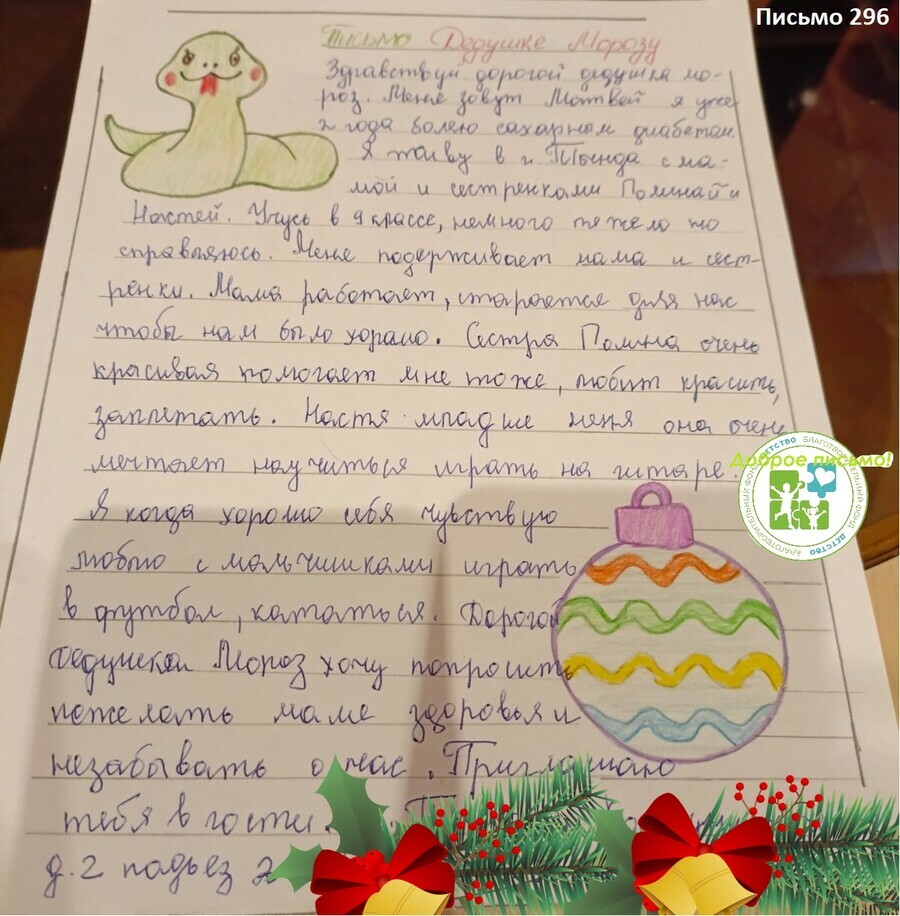 Письмо 296
Письмо Дедушке Морозу
Здравствуй дорогой дедушка мо-
роз. Меня зовут Матвей я уже
2 года болею сахарным диабетам.
Я живу в г. Тында с ма-
мой и сестренками Полинай и
Настей. Учусь в 9 классе, немного тяжело но
справляюсь. Меня подерживает мама и сест-
ренки. Мама работает, старается для нас
чтобы нам было хорошо. Сестра Полина очень
красивая помогает мне тоже, любит красить,
заплетать. Настя младше меня она очень
мечтает научиться играть на гитаре.
Доброе письмо!
БЛАГОТВОРИТЕЛЬНЫЙ ФОНД ДЕТСТВО
Я когда хорошо себя чувствую
люблю с мальчишками играть
в футбол, кататься. Дорогой
Дедушка Мороз хочу попросить
пожелать маме здоровья и
незабывать о нас. Приглашаю
тебя в гости.
д. 2 подьез 2